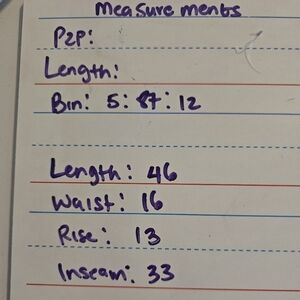 Measurements
P2P:
Length:
Bin: 5: 87: 12
Length: 46
Waist: 16
Rise: 13
Inseam: 33